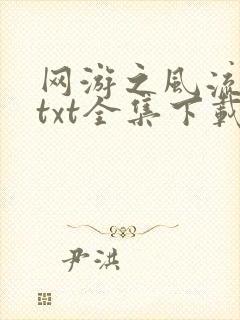 网游之风流
txt全集下载
尹洪